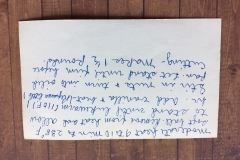 moderate heat 9 to 10 min to 238° F
Remove from heat and allow
to stand until lukewarm (110 F)
add vanilla + beat
Stir in nuts + turn into oiled
pan. Let stand until firm before
cutting. Makes 1 ½ pounds